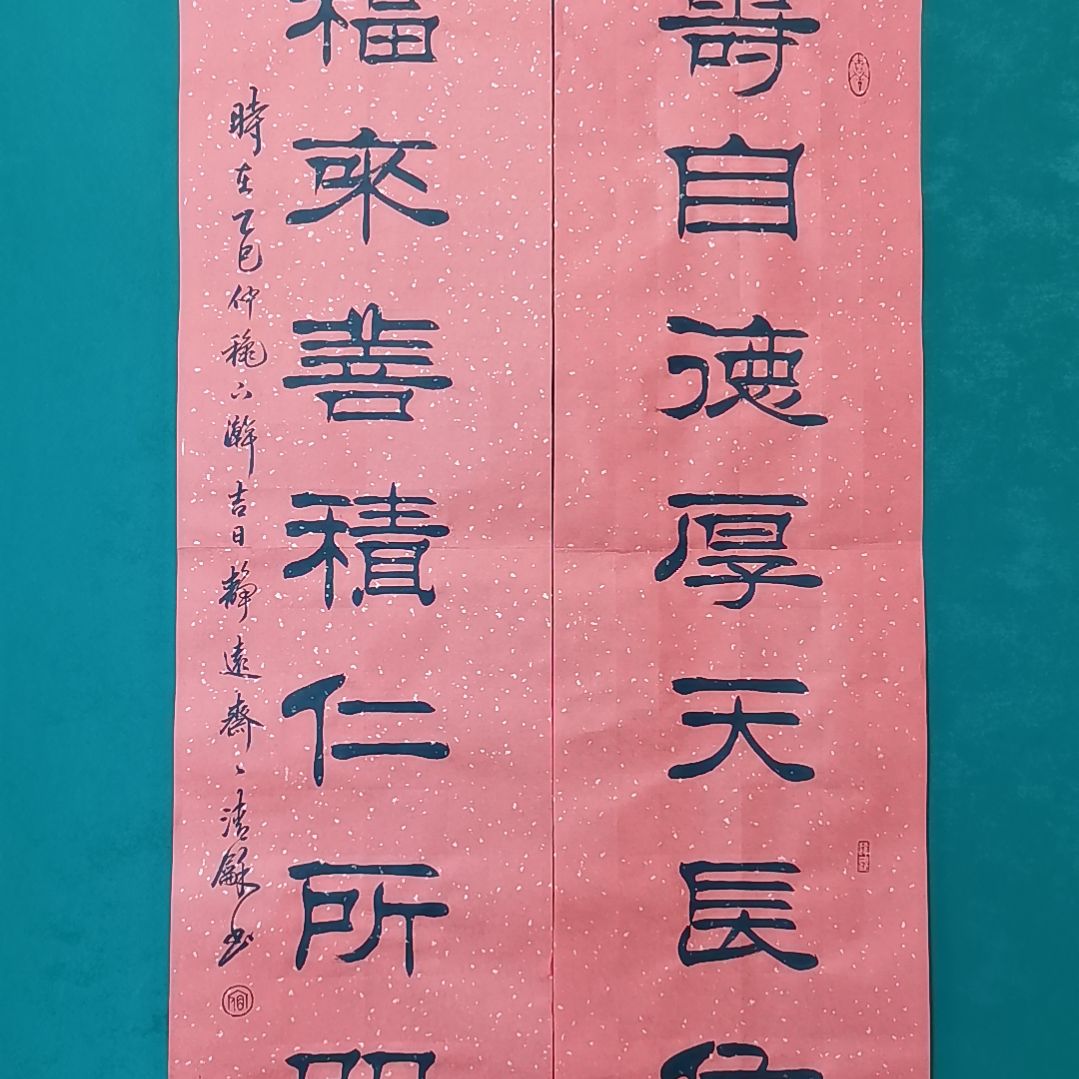 壽自德厚天長
福來善積仁所
時在乙巳仲秋下澣吉日靜遠齋清龢書